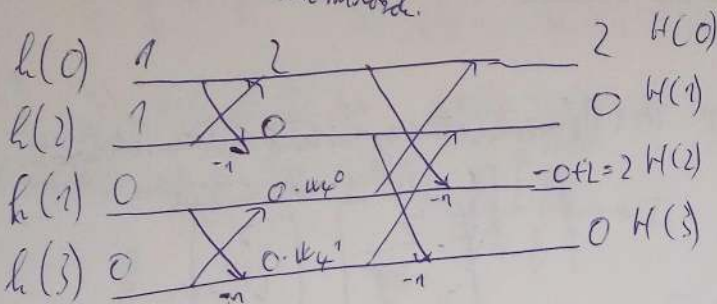 h(0) 1 2 2 H(0)
h(2) 1 0 0 H(1)
-1
h(1) 0 0·W₄⁰ -0+2=2 H(2)
-1
h(3) 0 0·W₄¹ 0 H(3)
-1 -1